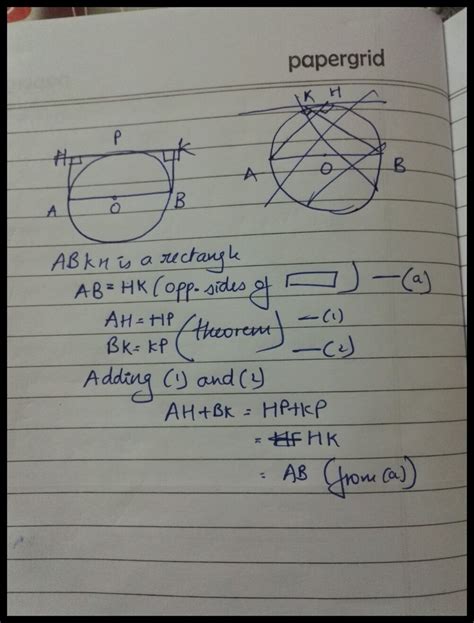 papergrid
K H
P
H K
A O B
A O B
ABKH is a rectangle
AB = HK (opp. sides of ▭) — (a)
AH = HP
BK = KP (theorem) — (1)
— (2)
Adding (1) and (2)
AH + BK = HP + KP
= HK
= AB (from (a))